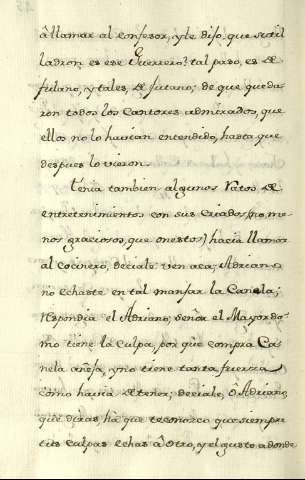 â llamar al confesor, y le dijo, que sutil
ladron es ese Guerrero? tal paso, es de
fulano, y tales, de sutano; de que queda-
ron todos los Cantores admirados, que
ellos no lo havian entendido, hasta que
despues lo vieron.
Tenia tambien algunos ratos de
entretenimientos con sus criados, (no me-
nos graciosos, que onestos) hacia llamar
al cocinero, deciale: ven aca; Adriano
no echaste en tal manjar la Canela;
respondia el Adriano; señor el Mayordo-
mo tiene la culpa, por que compra Ca-
nela añeja, y no tiene tanta fuerza
como havia de tener; deciale, ô Adriano,
que diras, ha que te conozco que siempre
tus culpas echas â otro, y el gusto adonde